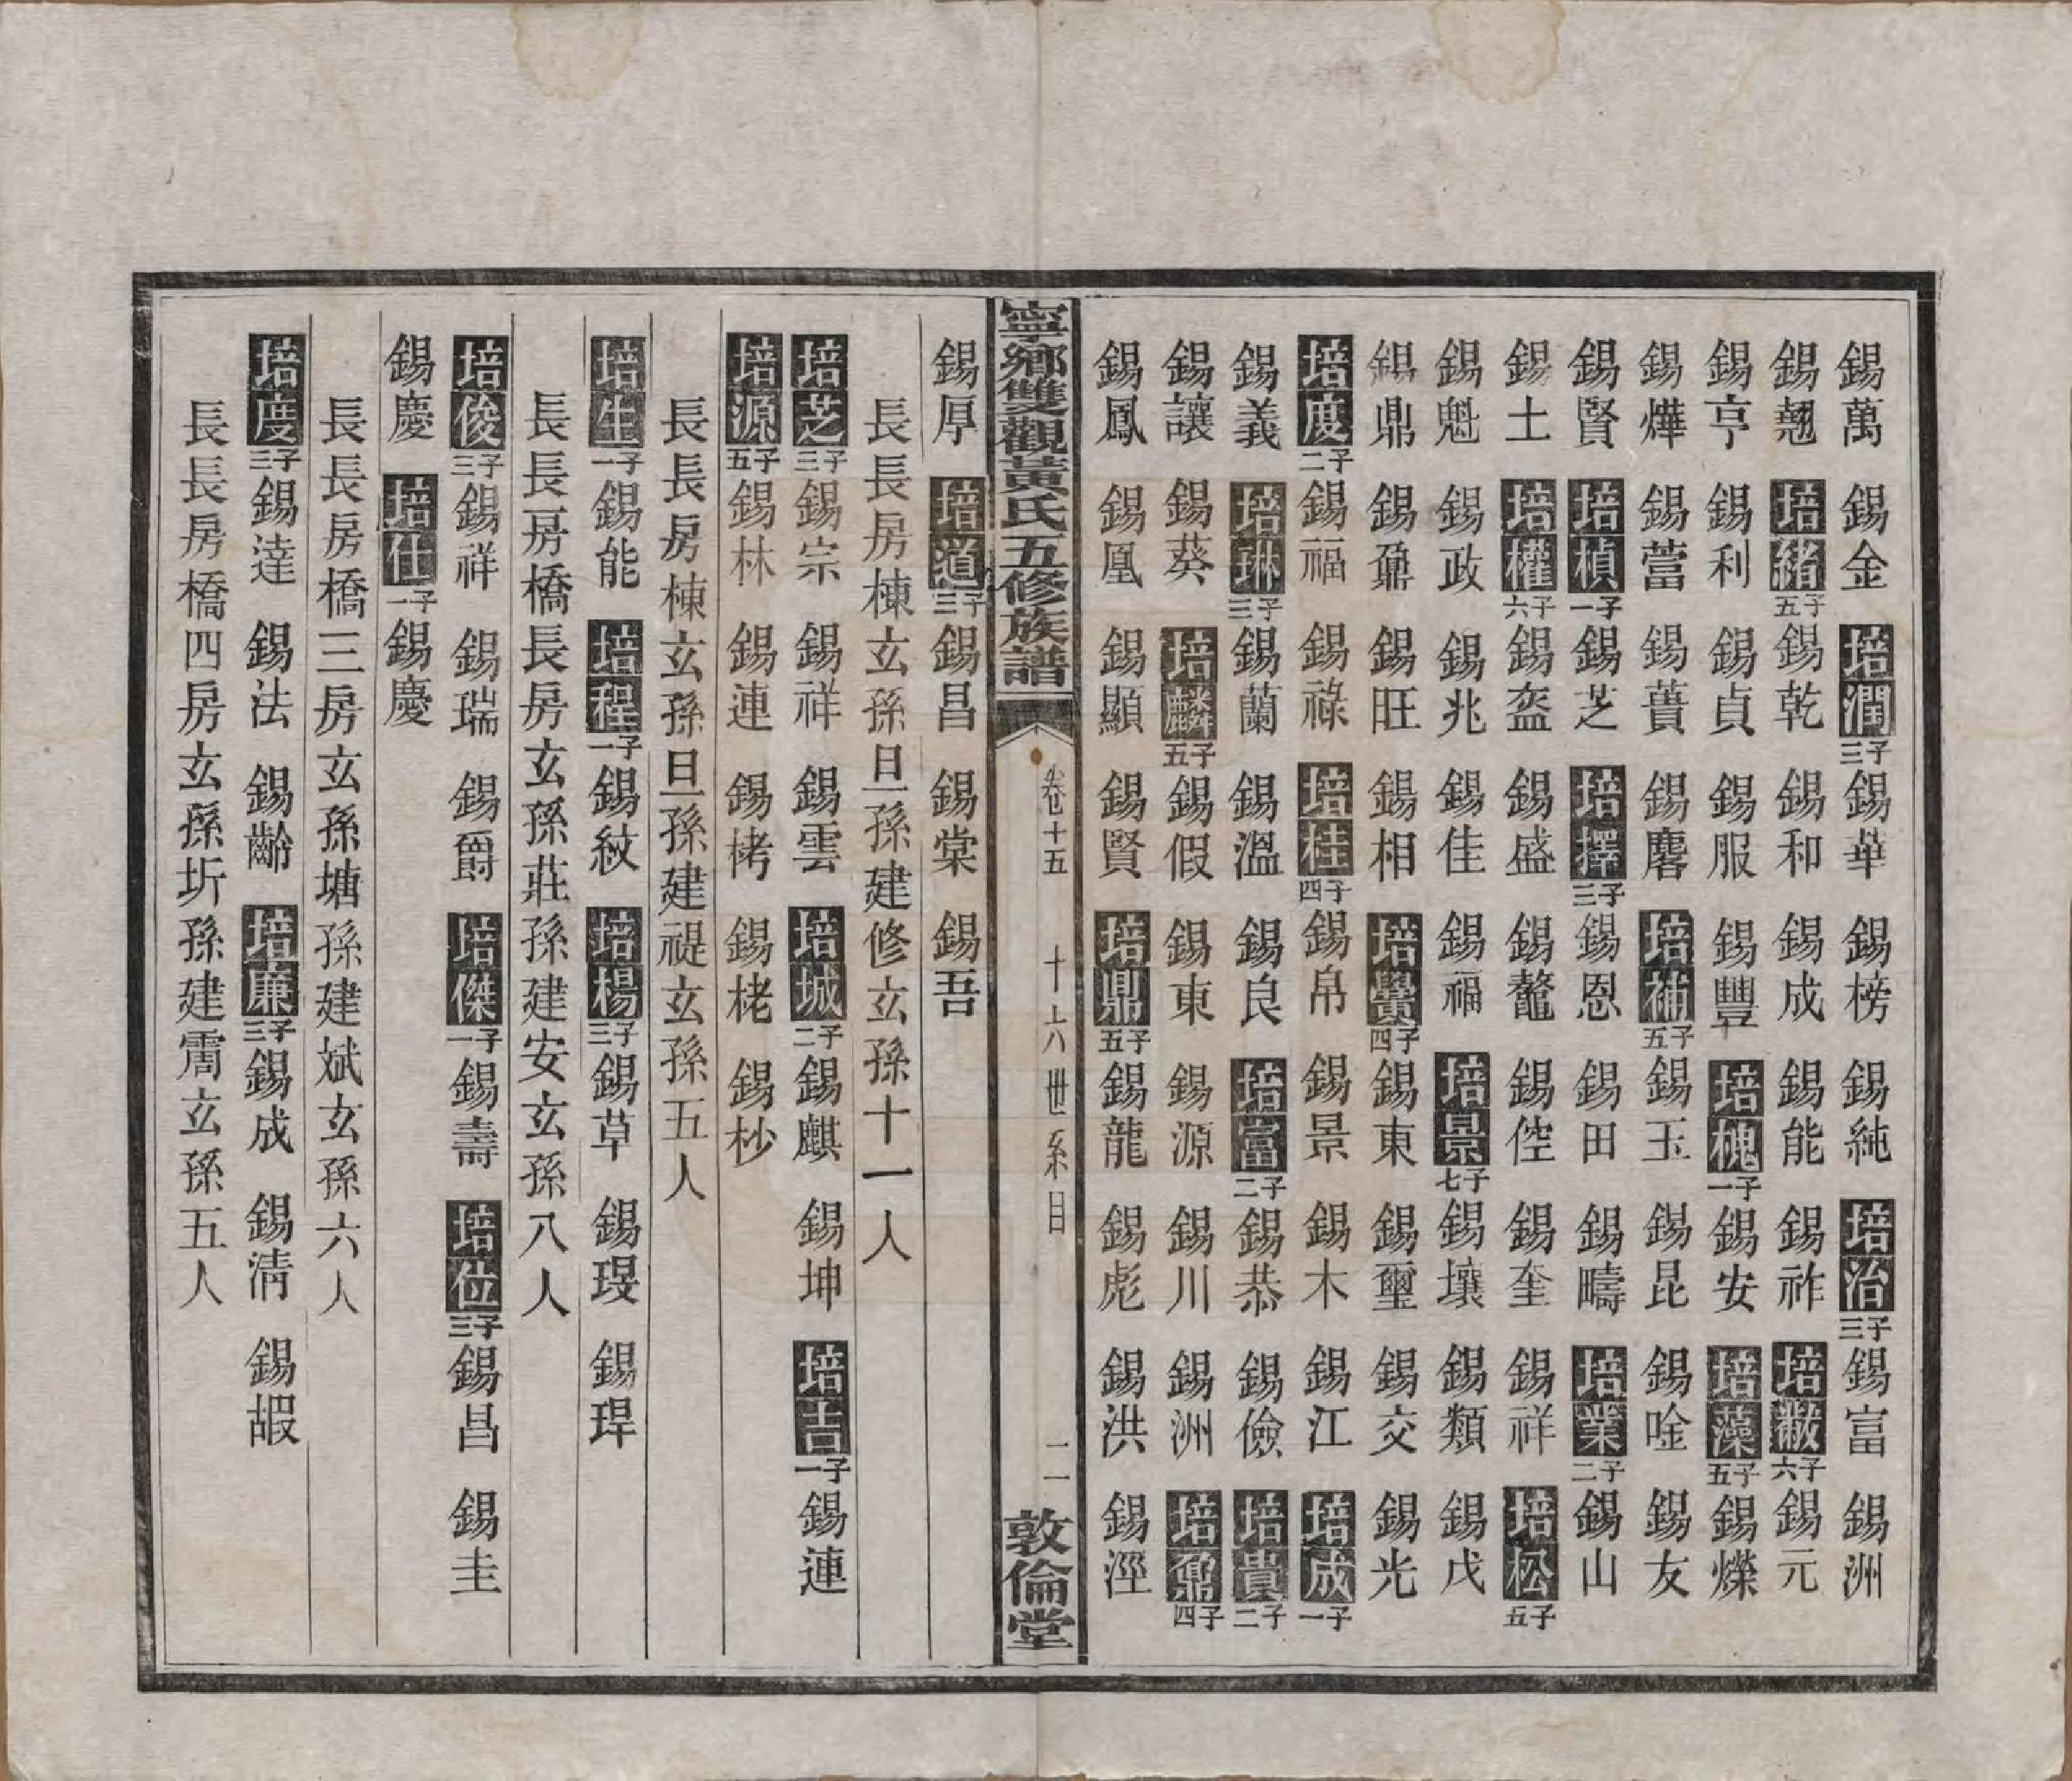 錫萬 錫金 培潤三子 錫華 錫榜 錫純 培治三子 錫富 錫洲
錫翹 培緒五子 錫乾 錫和 錫成 錫能 錫祚 培黻六子 錫元
錫亨 錫利 錫貞 錫服 錫豐 培槐一子 錫安 培藻五子 錫爍
錫燁 錫蓄 錫蕢 錫麐 培補五子 錫玉 錫昆 錫唫 錫友
錫賢 培楨一子 錫芝 培擇三子 錫恩 錫田 錫疇 培業二子 錫山
錫土 培權六子 錫盔 錫盛 錫鼇 錫倥 錫奎 錫祥 培松五子
錫魁 錫政 錫兆 錫佳 錫福 培景七子 錫壤 錫類 錫戊
錫鼎 錫鼐 錫旺 錫相 培黌四子 錫東 錫璽 錫交 錫光
培度二子 錫福 錫祿 培桂四子 錫帛 錫景 錫木 錫江 培成一子
錫義 培琳三子 錫蘭 錫溫 錫良 培富二子 錫恭 錫儉 培貴二子
錫讓 錫葵 培麟五子 錫假 錫東 錫源 錫川 錫洲 培鼐四子
錫鳳 錫凰 錫顯 錫賢 培鼎五子 錫龍 錫彪 錫洪 錫涇
寧鄉雙觀黃氏五修族譜 卷十五 十六世系目 二 敦倫堂
錫厚 培道三子 錫昌 錫棠 錫吾
長長房棟玄孫旦孫建修玄孫十一人
培芝三子 錫宗 錫祥 錫雲 培城二子 錫麒 錫坤 培吉一子 錫連
培源五子 錫林 錫連 錫栲 錫栳 錫杪
長長房棟玄孫旦孫建禔玄孫五人
培生一子 錫能 培程一子 錫紋 培楊三子 錫草 錫琝 錫琾
長長房橋長房玄孫莊孫建安玄孫八人
培俊三子 錫祥 錫瑞 錫爵 培傑一子 錫壽 培位三子 錫昌 錫圭
錫慶 培仕一子 錫慶
長長房橋三房玄孫塘孫建斌玄孫六人
培度三子 錫達 錫法 錫齡 培廉三子 錫成 錫清 錫嘏
長長房橋四房玄孫圻孫建霱玄孫五人